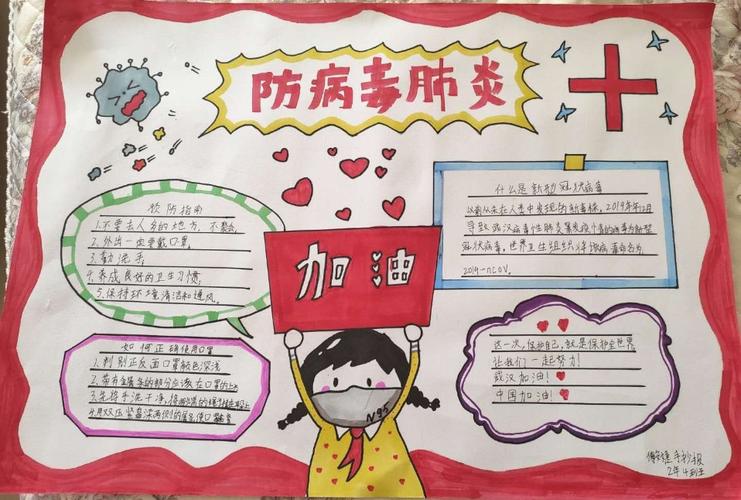 防病毒肺炎
预防指南
1.不要去人多的地方,不聚会
2.外出一定要戴口罩,
3.勤洗手,
4.养成良好的卫生习惯,
5.保持环境清洁和通风。
什么是新型冠状病毒
以前从未在人类中发现的新毒株。2019年12月
导致武汉病毒性肺炎暴发疫情的病毒为新型
冠状病毒,世界卫生组织将该病毒命名为
2019-nCOV.
加油
如何正确使用口罩
1.判别正反面口罩颜色深浅
2.带有金属条的部分应该在口罩的上方
3.先将手洗干净,将两端的绳子挂在耳朵上
4.用双手压紧
N95
这一次,保护自己,就是保护全世界,
让我们一起努力!
武汉加油!
中国加油!
手抄报
2年4班